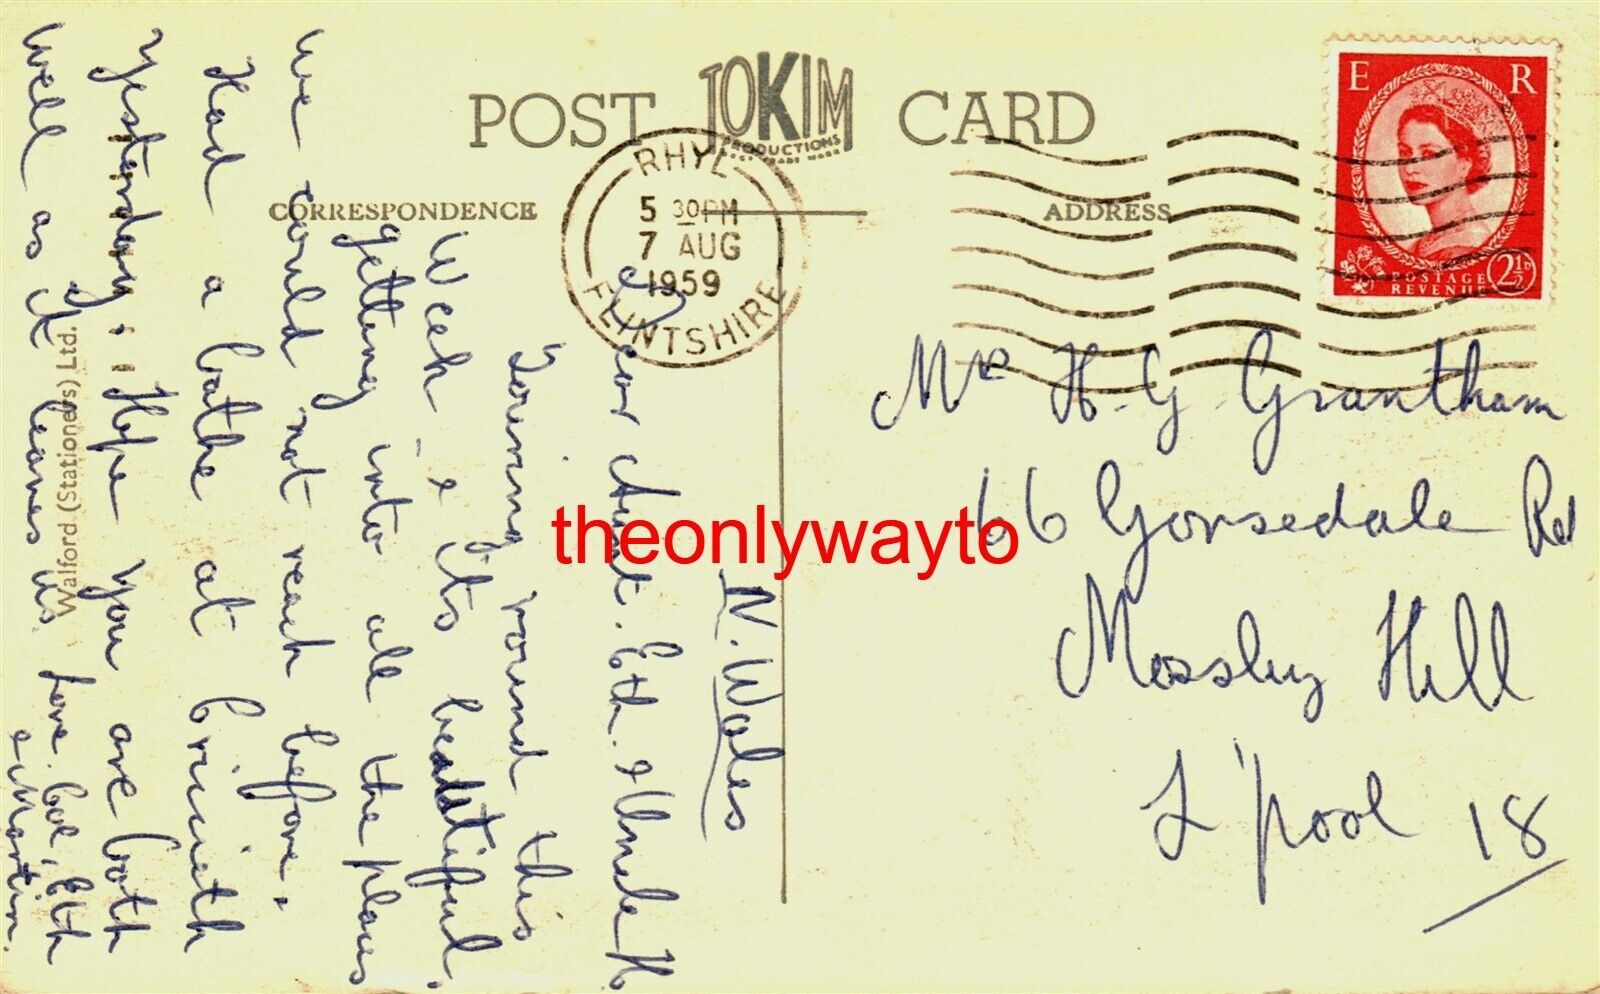 POST JOKIM CARD
PRODUCTIONS
TRADE MARK
CORRESPONDENCE
ADDRESS
RHYL
5 30PM
7 AUG
1959
FLINTSHIRE
E R
POSTAGE
REVENUE
2½D
N. Wales
Dear Aunt. Eth. & Uncle H
Touring round this
Week & its beautiful,
getting into all the places
we could not reach before.
Had a bathe at Criccieth
Yesterday. Hope you are both
well as it leaves us. Love
Eth
& Martin.
Walford (Stationers) Ltd.
Mr H. G. Grantham
66 Gorsedale Rd
Mossley Hill
L'pool 18
theonlywayto